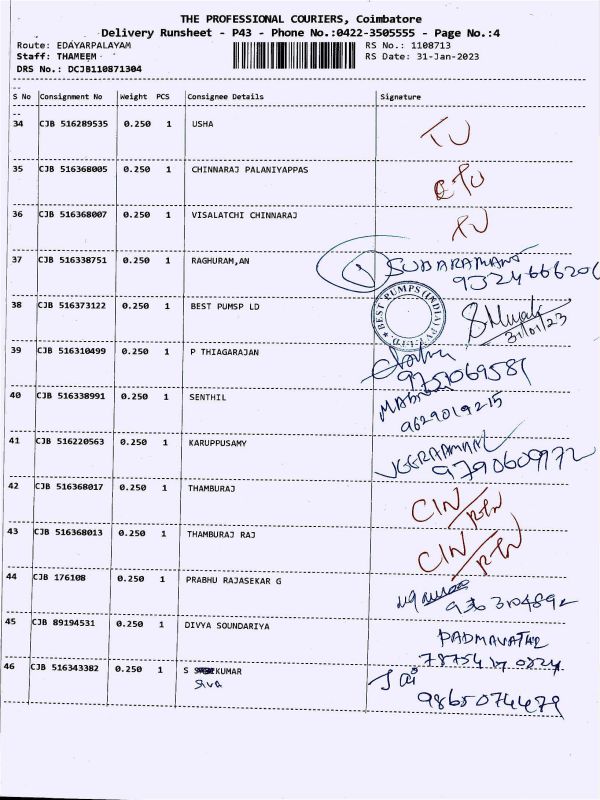 THE PROFESSIONAL COURIERS, Coimbatore
Delivery Runsheet - P43 - Phone No.:0422-3505555 - Page No.:4
Route: EDAYARPALAYAM RS No.: 1108713
Staff: THAMEEM RS Date: 31-Jan-2023
DRS No.: DCJB110871304
S No Consignment No Weight PCS Consignee Details Signature
34 CJB 516289535 0.250 1 USHA TU
35 CJB 516368005 0.250 1 CHINNARAJ PALANIYAPPAS
36 CJB 516368007 0.250 1 VISALATCHI CHINNARAJ
37 CJB 516338751 0.250 1 RAGHURAM,AN
9324666206
38 CJB 516373122 0.250 1 BEST PUMSP LD BEST PUMPS (INDIA) PVT. LTD
31/01/23
39 CJB 516310499 0.250 1 P THIAGARAJAN
9751069581
40 CJB 516338991 0.250 1 SENTHIL
9629019215
41 CJB 516220563 0.250 1 KARUPPUSAMY
9790609972
42 CJB 516368017 0.250 1 THAMBURAJ CIN/RTN
43 CJB 516368013 0.250 1 THAMBURAJ RAJ CIN/RTN
44 CJB 176108 0.250 1 PRABHU RAJASEKAR G
45 CJB 89194531 0.250 1 DIVYA SOUNDARIYA PADMAVATHI
46 CJB 516343382 0.250 1 S KUMAR Jai
Siva 9865074479